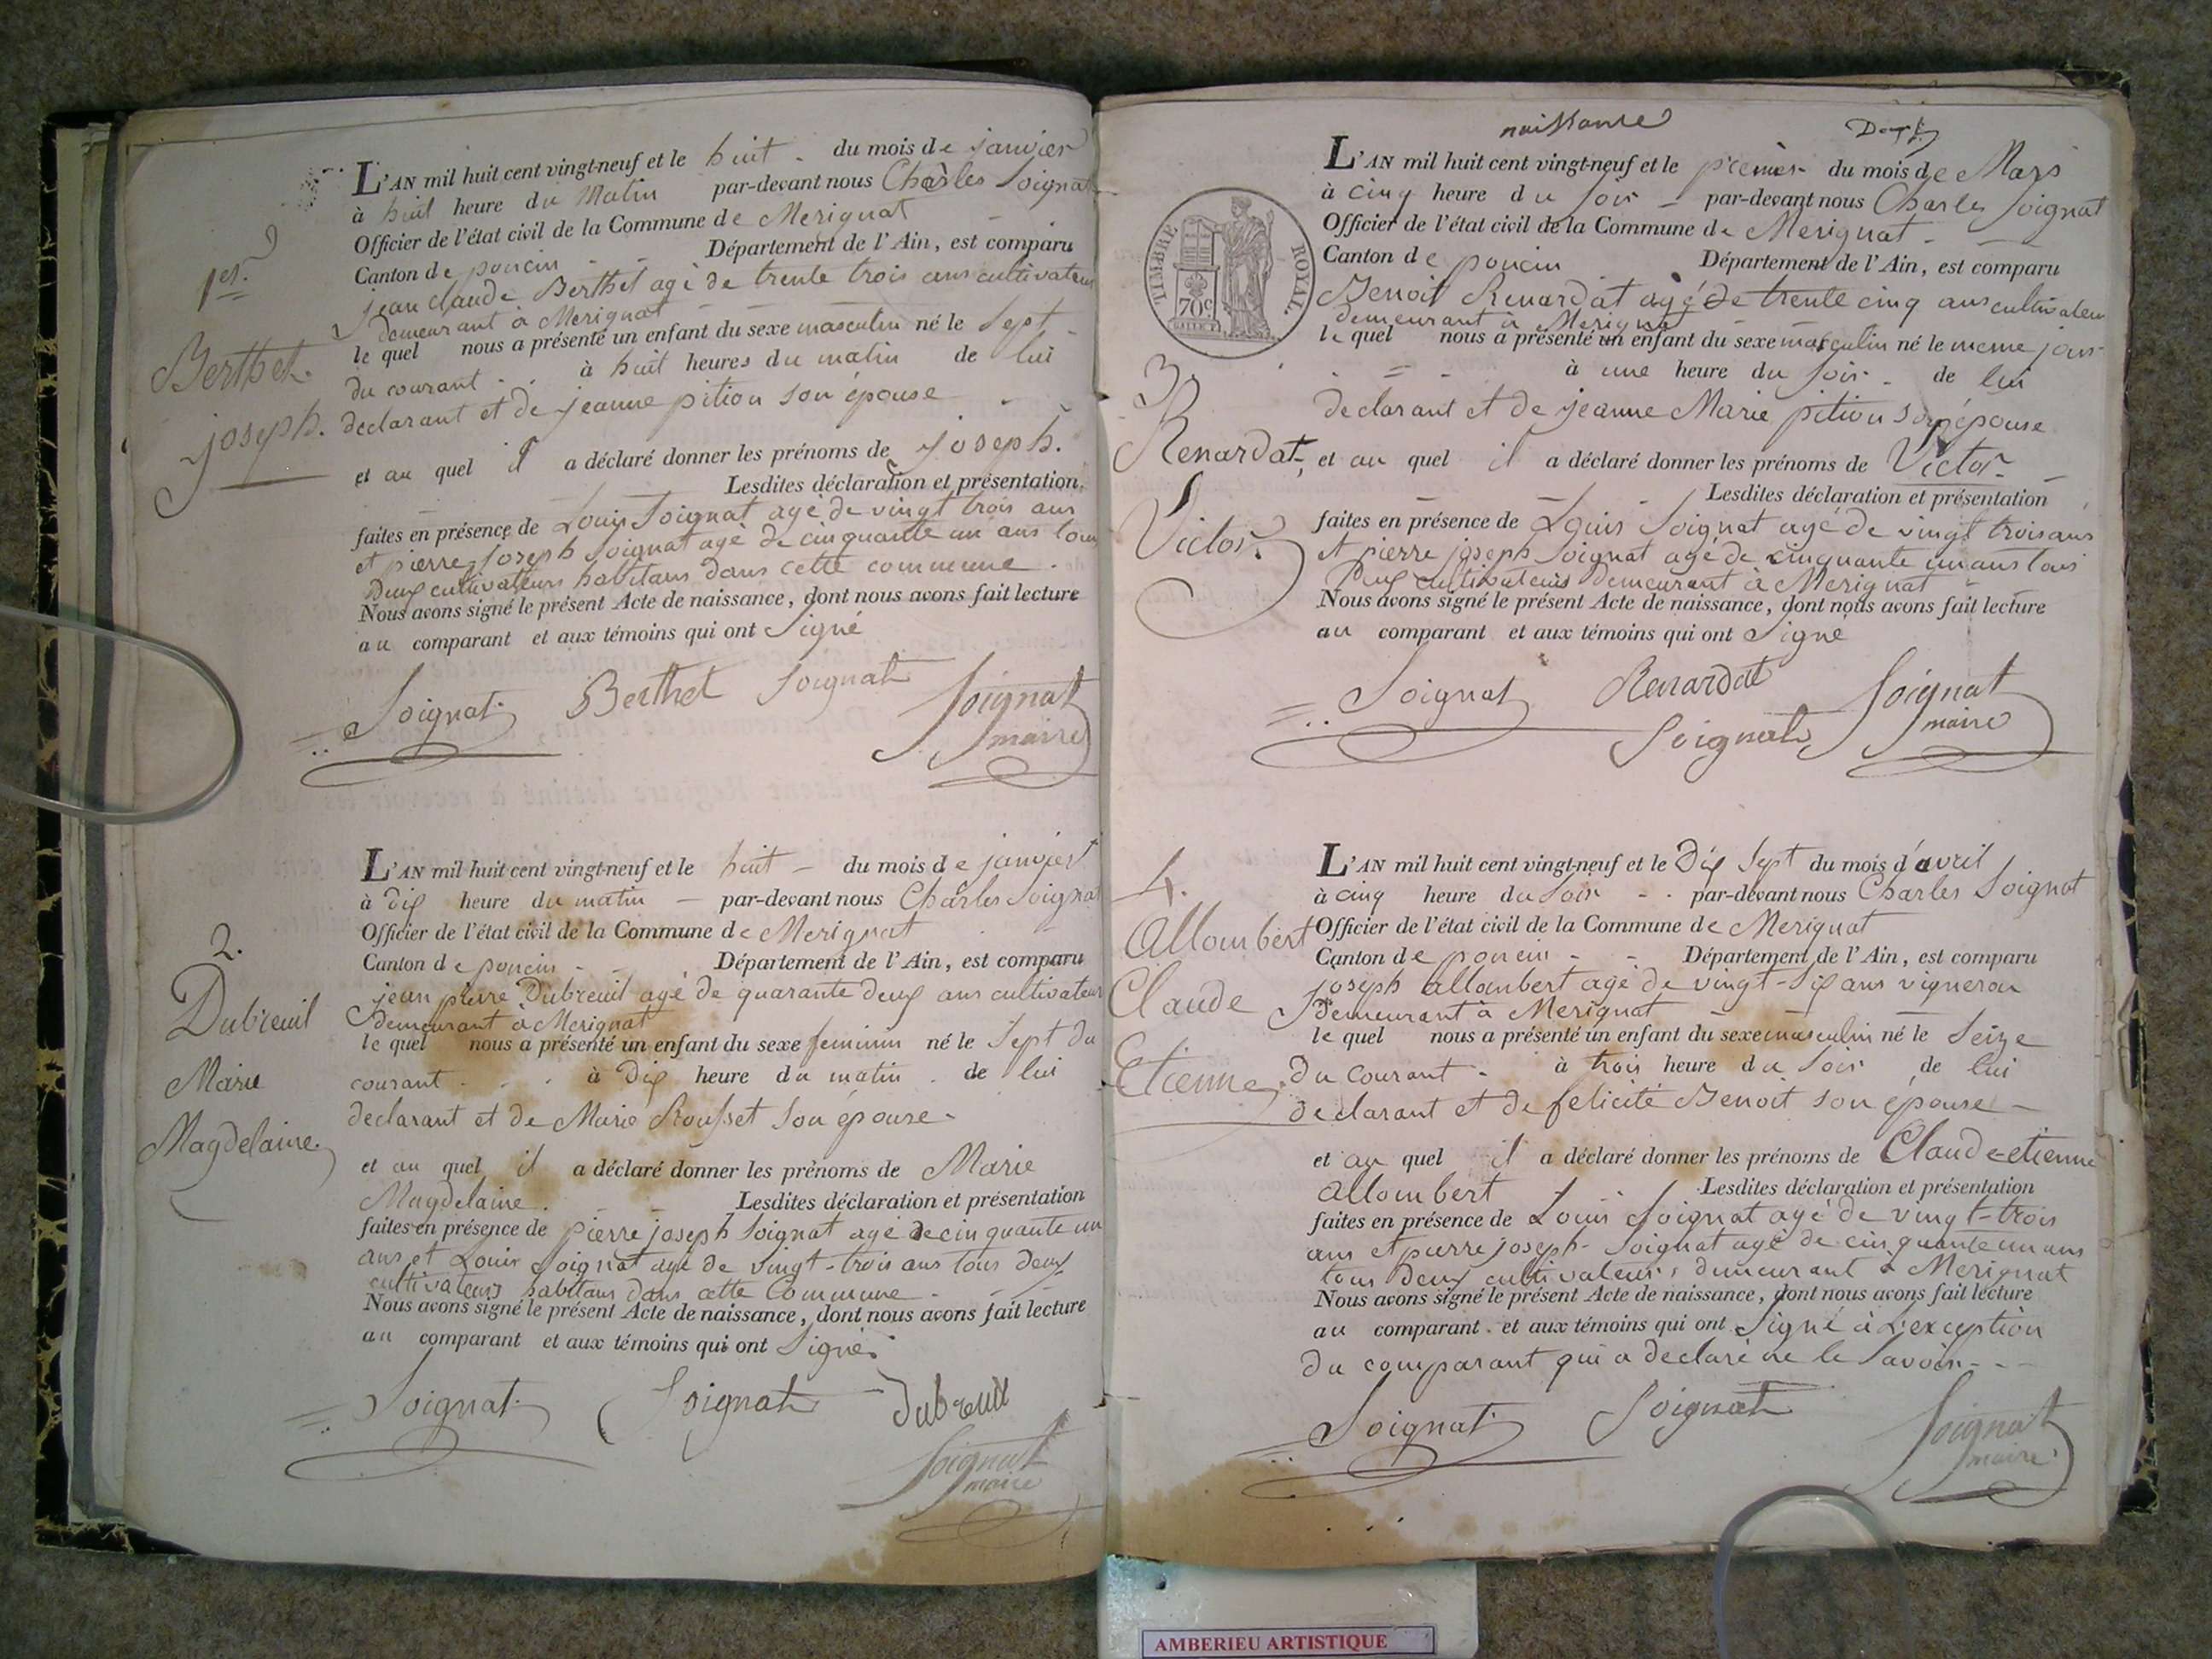 L'AN mil huit cent vingt-neuf et le huit du mois de janvier
à huit heure du Matin par-devant nous Charles Soignat
Officier de l'état civil de la Commune de Merignat
Canton de poncin Département de l'Ain, est comparu
jean Claude Berthet agé de trente trois ans cultivateur
demeurant à Merignat
le quel nous a présenté un enfant du sexe masculin né le Sept
du courant à huit heures du matin de lui
declarant et de jeanne pition son épouse
et au quel il a déclaré donner les prénoms de joseph.
Lesdites déclaration et présentation
faites en présence de Louis Soignat agé de vingt trois ans
et pierre Joseph Soignat agé de cinquante un ans tous
Deux cultivateurs habitans dans cette commune.
Nous avons signé le présent Acte de naissance, dont nous avons fait lecture
au comparant et aux témoins qui ont Signé
Soignat Berthet Soignat Soignat
maire
1er.
Berthet
joseph.
L'AN mil huit cent vingt-neuf et le huit du mois de janvier
à dix heure du matin par-devant nous Charles Soignat
Officier de l'état civil de la Commune de Merignat
Canton de poncin Département de l'Ain, est comparu
jean pierre Dubreuil agé de quarante deux ans cultivateur
Demeurant à Merignat
le quel nous a présenté un enfant du sexe feminin né le Sept du
courant à Dix heure du matin de lui
declarant et de Marie Rousset son épouse
et au quel il a déclaré donner les prénoms de Marie
Magdelaine. Lesdites déclaration et présentation
faites en présence de pierre joseph Soignat agé de cinquante un
ans et Louis Soignat agé de vingt-trois ans tous deux
cultivateurs habitans dans cette Commune
Nous avons signé le présent Acte de naissance, dont nous avons fait lecture
au comparant et aux témoins qui ont Signé
Soignat Soignat dubreuil
Soignat
maire
2.
Dubreuil
Marie
Magdelaine
naissance
L'AN mil huit cent vingt-neuf et le premier du mois de Mars
à cinq heure du soir par-devant nous Charles Soignat
Officier de l'état civil de la Commune de Merignat
Canton de poncin Département de l'Ain, est comparu
Benoit Renardat agé de trente cinq ans cultivateur
demeurant à Merignat
le quel nous a présenté un enfant du sexe masculin né le meme jour
à une heure du soir de lui
declarant et de jeanne Marie pition son épouse
et au quel il a déclaré donner les prénoms de Victor
Lesdites déclaration et présentation
faites en présence de Louis Soignat agé de vingt trois ans
et pierre joseph Soignat agé de cinquante un ans tous
Deux cultivateurs demeurant à Merignat
Nous avons signé le présent Acte de naissance, dont nous avons fait lecture
au comparant et aux témoins qui ont Signé
Soignat Renardat Soignat
Soignat maire
TIMBRE ROYAL.
70c
3.
Renardat,
Victor.
L'AN mil huit cent vingt-neuf et le Dix Sept du mois d'avril
à cinq heure du Soir par-devant nous Charles Soignat
Officier de l'état civil de la Commune de Merignat
Canton de poncin Département de l'Ain, est comparu
joseph allombert agé de vingt-six ans vigneron
Demeurant à Merignat
le quel nous a présenté un enfant du sexe masculin né le Seize
du courant à trois heure du Soir de lui
declarant et de felicité Benoit son épouse
et au quel il a déclaré donner les prénoms de Claude etienne
allombert Lesdites déclaration et présentation
faites en présence de Louis Soignat agé de vingt-trois
ans et pierre joseph Soignat agé de cinquante un ans
tous Deux cultivateurs demeurant à Merignat
Nous avons signé le présent Acte de naissance, dont nous avons fait lecture
au comparant et aux témoins qui ont Signé à L'exception
du comparant qui a declaré ne le Savoir
Soignat Soignat Soignat
maire
4.
Allombert
Claude
Etienne
AMBERIEU ARTISTIQUE